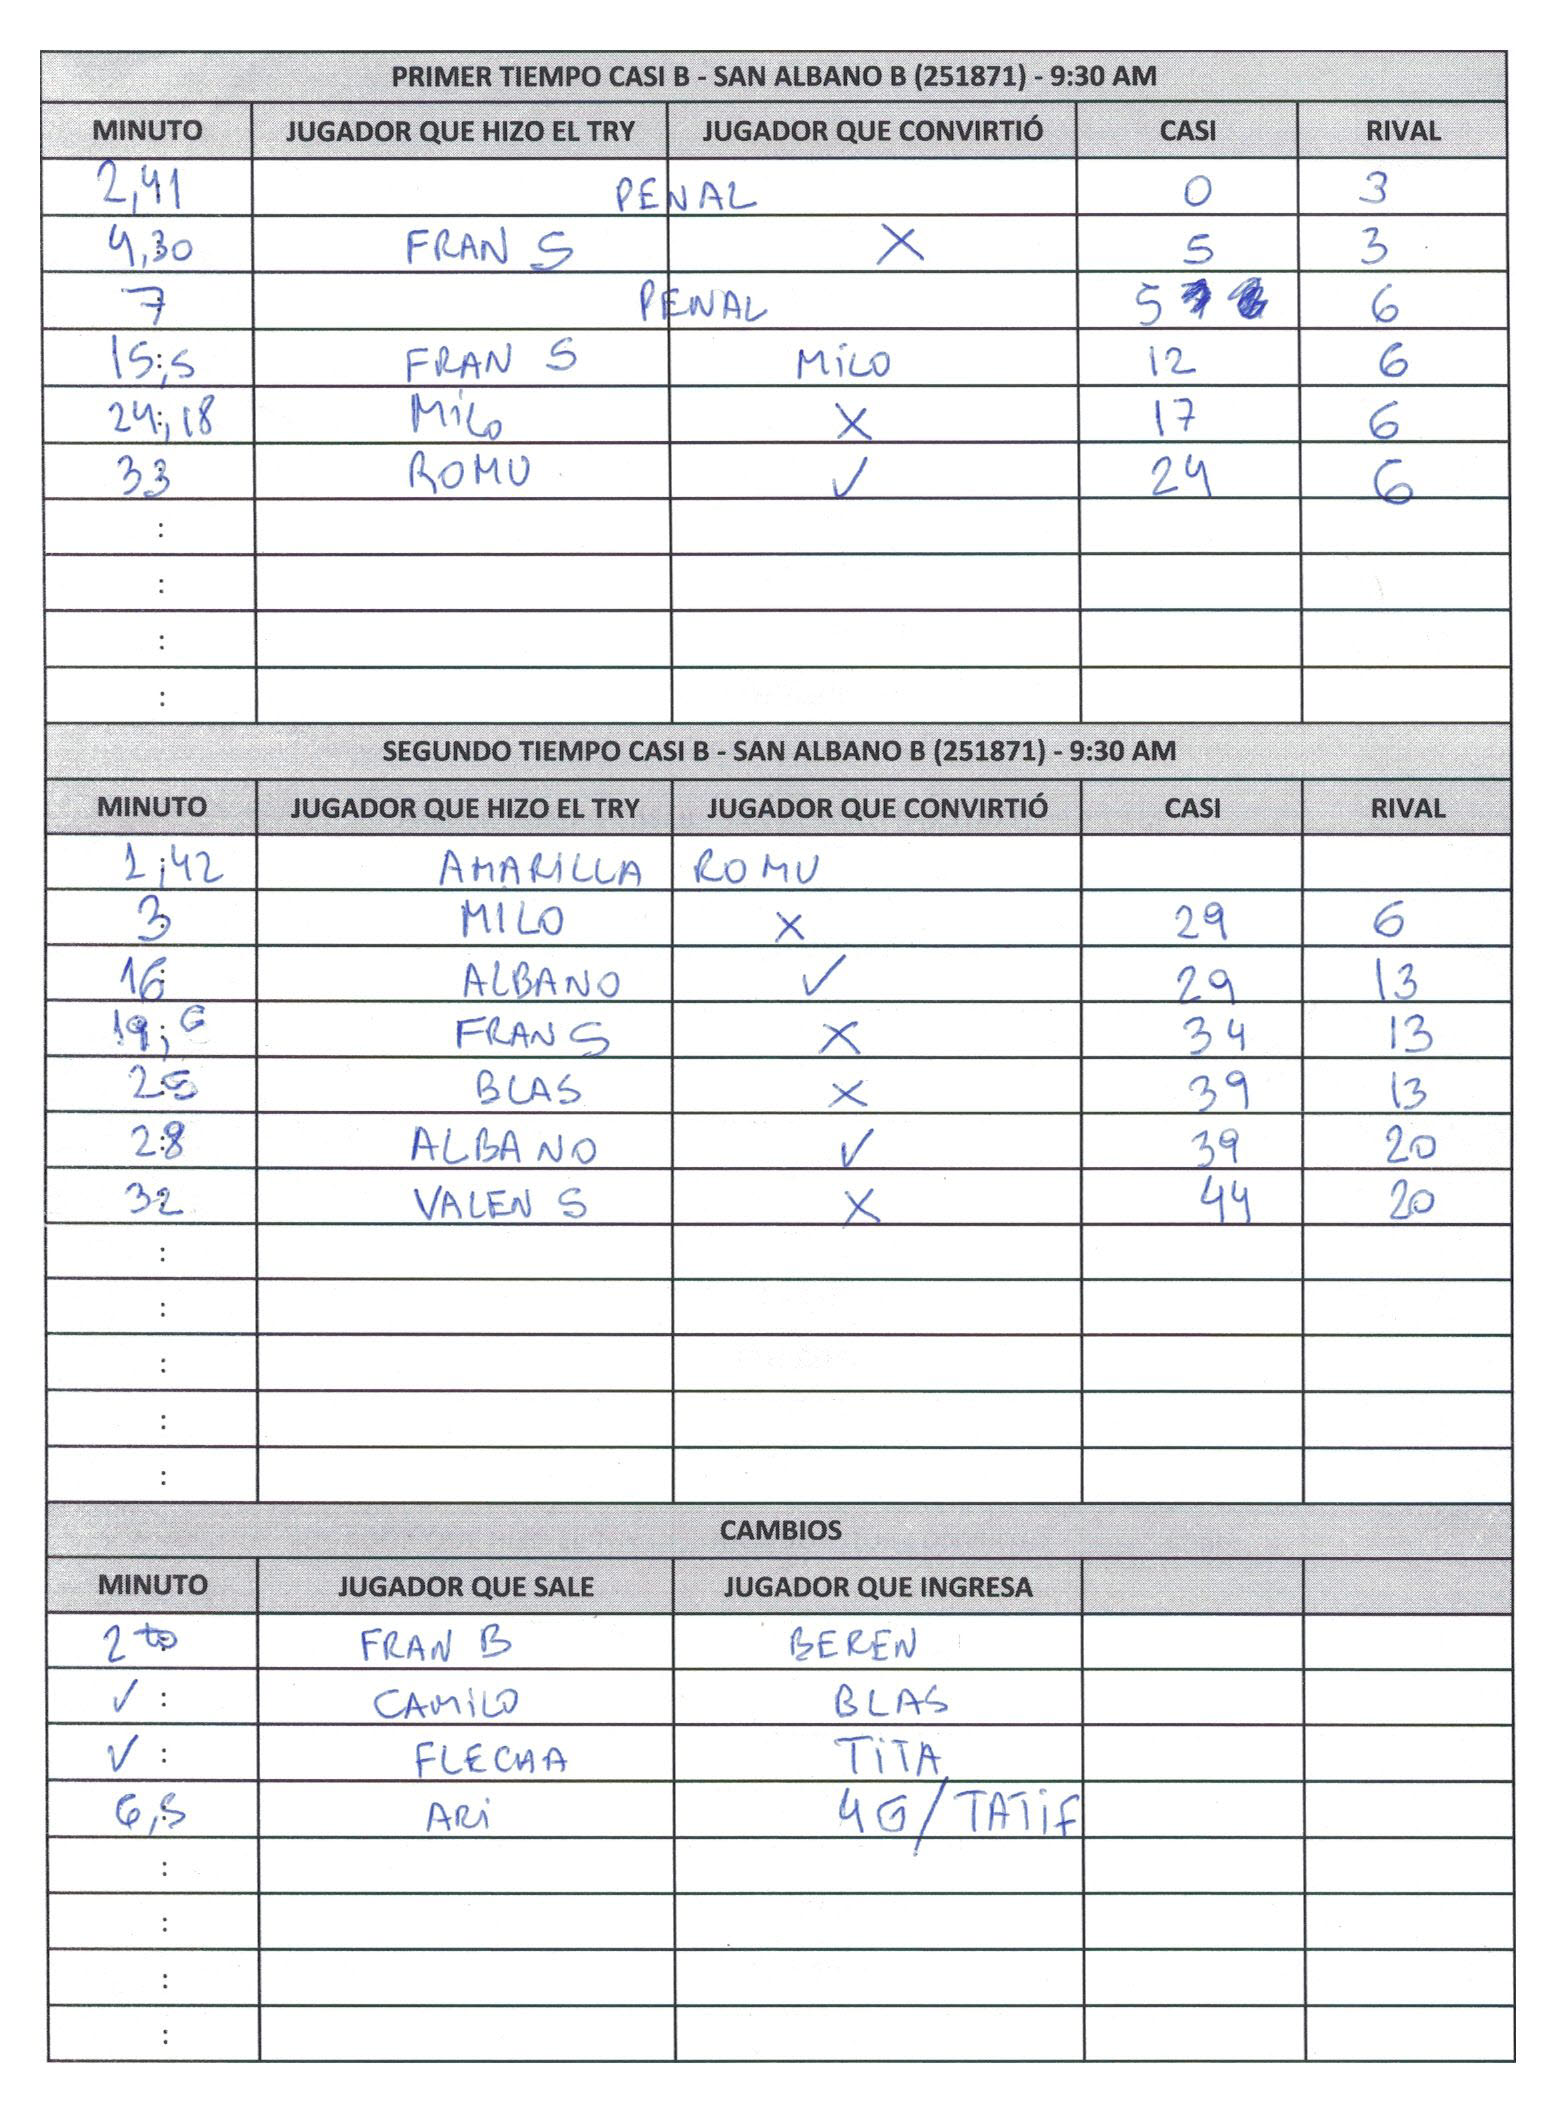 PRIMER TIEMPO CASI B - SAN ALBANO B (251871) - 9:30 AM
MINUTO JUGADOR QUE HIZO EL TRY JUGADOR QUE CONVIRTIÓ CASI RIVAL
2,41 PENAL 0 3
4,30 FRAN S X 5 3
7 PENAL 5 6
15:,5 FRAN S MiLO 12 6
24:,18 MiLo X 17 6
33 ROMU ✓ 24 6
:
:
:
:
SEGUNDO TIEMPO CASI B - SAN ALBANO B (251871) - 9:30 AM
MINUTO JUGADOR QUE HIZO EL TRY JUGADOR QUE CONVIRTIÓ CASI RIVAL
1;42 AMARiLLA ROMU
3 MILO X 29 6
16 ALBANO ✓ 29 13
19; 6 FRAN S X 34 13
25 BLAS X 39 13
28 ALBANO ✓ 39 20
32 VALEN S X 44 20
:
:
:
:
:
CAMBIOS
MINUTO JUGADOR QUE SALE JUGADOR QUE INGRESA
2 to FRAN B BEREN
✓ : CAMiLO BLAS
✓ : FLECHA TiTA
6,5 ARi 4G/TATiF
:
:
:
: